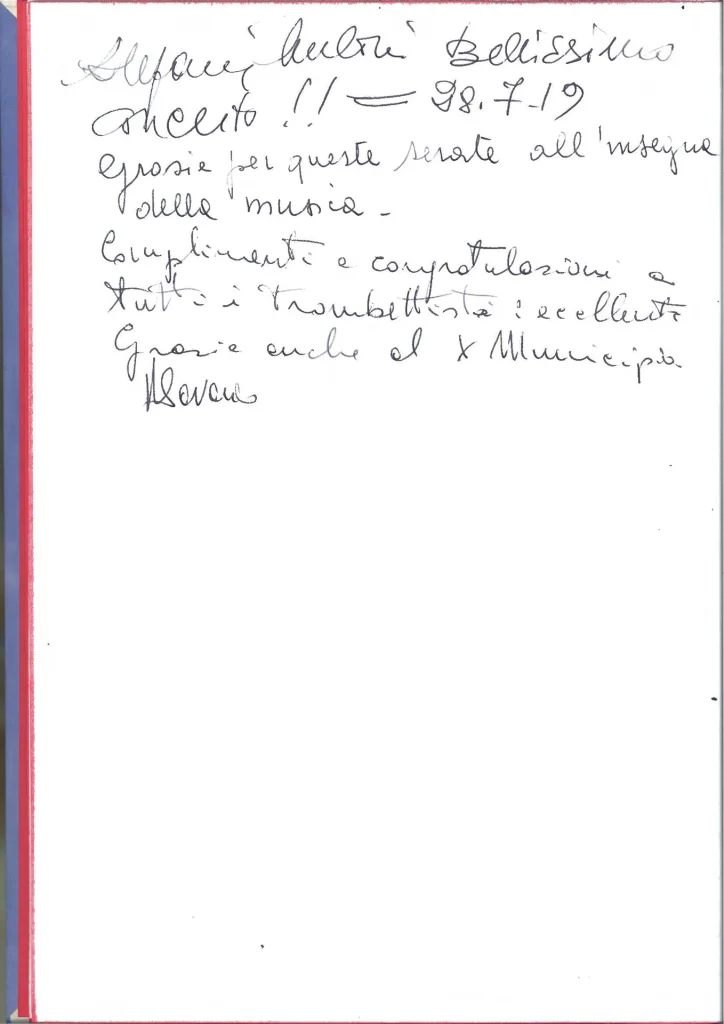 Stefani Bellissimo
Concerto !! = 28.7.19
Grazie per queste serate all'insegna
della musica -
Complimenti e congratulazioni a
tutti i trombettisti : eccellenti
Grazie anche al X Municipio